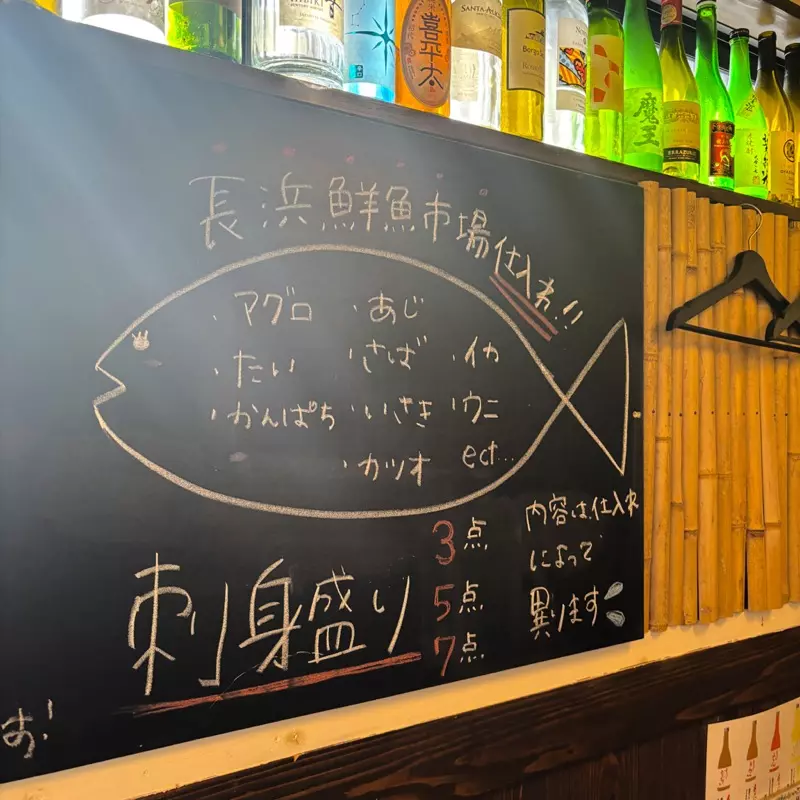 喜平太
SANTA
魔王
長浜鮮魚市場仕入れ!!
・マグロ ・あじ
・たい ・さば ・イカ
・かんぱち ・いさき ・ウニ
・カツオ ect...
刺身盛り
3点
5点
7点
内容は仕入れ
によって
異ります
お!